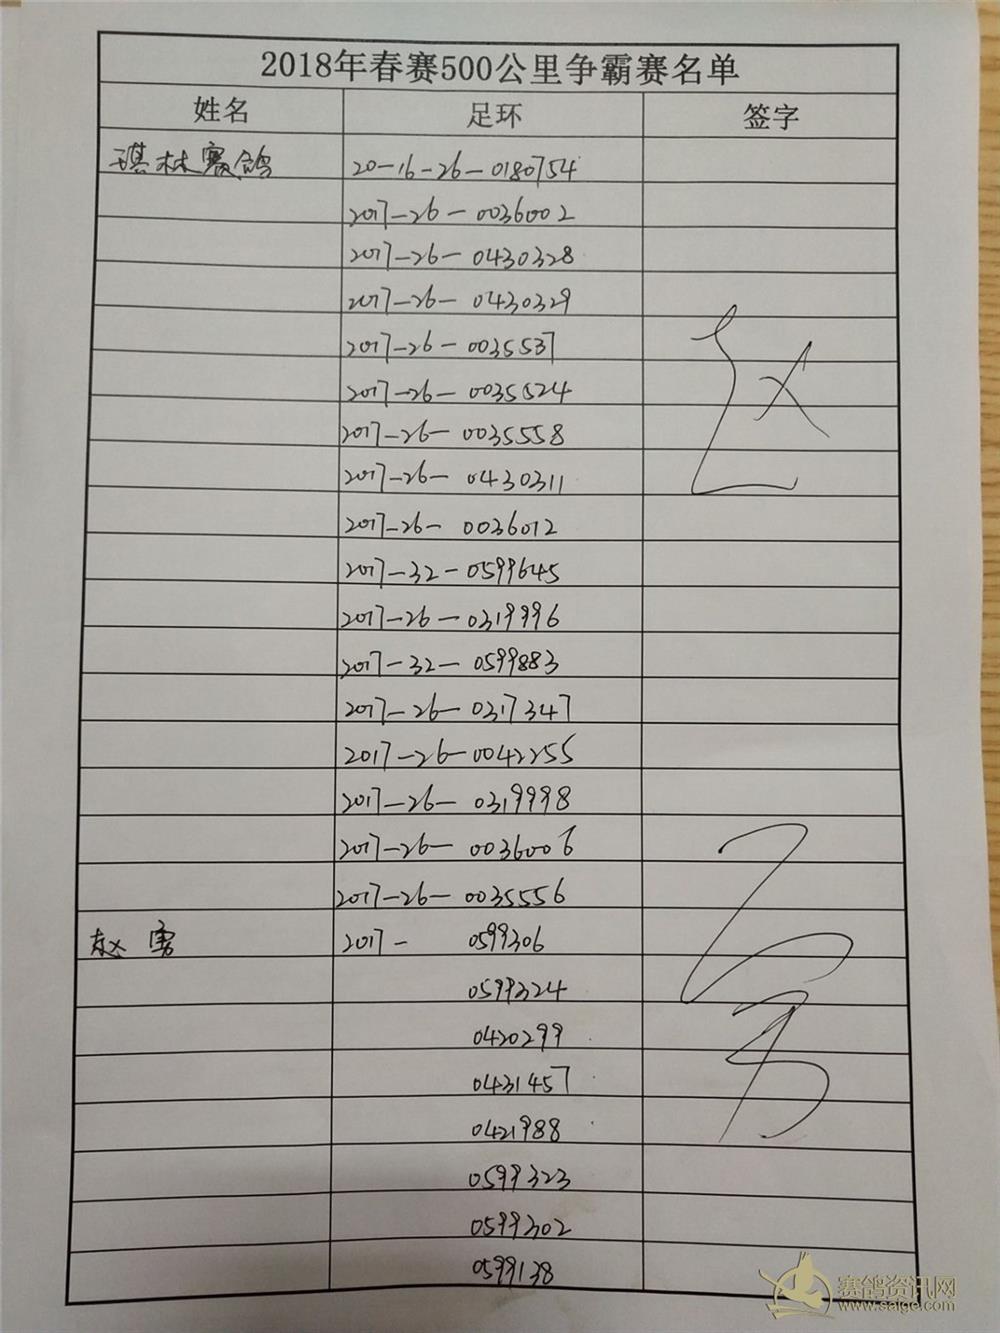 2018年春赛500公里争霸赛名单
姓名 足环 签字
琪林赛鸽 20-16-26-0180754
2017-26-0036002
2017-26-0430328
2017-26-0430329
2017-26-0035537
2017-26-0035524
2017-26-0035558
2017-26-0430311
2017-26-0036012
2017-32-0599645
2017-26-0319996
2017-32-0599883
2017-26-0317347
2017-26-0042255
2017-26-0319998
2017-26-0036006
2017-26-0035556
赵勇 2017- 0599306
0599324
0420299
0431457
0421988
0599323
0599302
0599138
赛鸽资讯网
www.saige.com